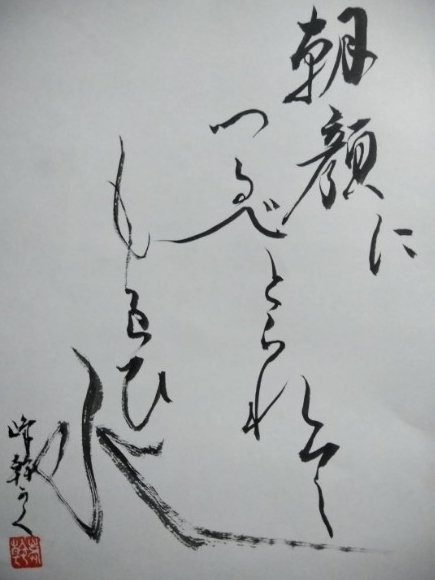 朝顔に
つるべとられて
もらひ水
峰幹かく